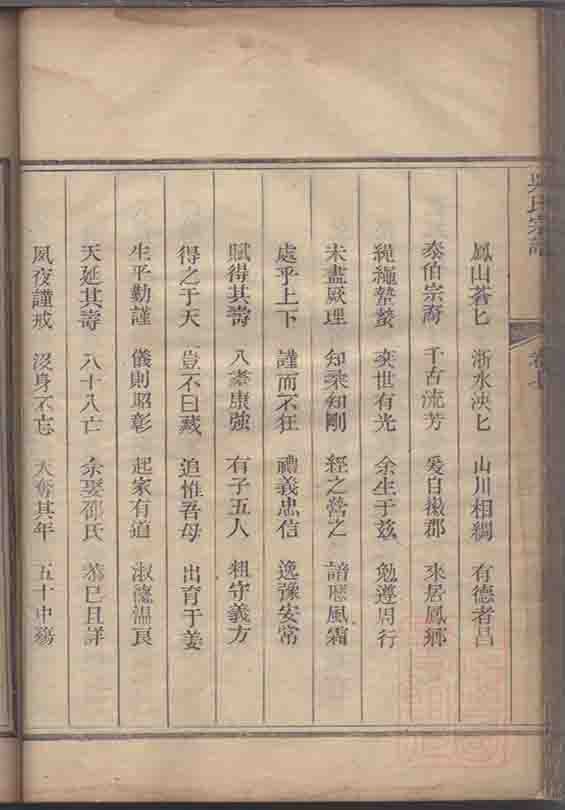 吳氏宗譜
卷七
鳳山蒼匕 浙水泱匕 山川相繆 有德者昌
泰伯宗裔 千古流芳 爰自徽郡 來居鳳鄉
繩繩蟄蟄 奕世有光 余生于茲 勉遵周行
未盡厥理 知柔知剛 經之營之 諳歷風霜
處乎上下 謹而不狂 禮義忠信 逸豫安常
賦得其壽 八袠康強 有子五人 粗守義方
得之于天 豈不曰臧 追惟吾母 出育于姜
生平勤謹 儀則昭彰 起家有道 淑慎溫良
天延其壽 八十八亡 余娶邵氏 恭巳且詳
夙夜謹戒 沒身不忘 天奪其年 五十中殤